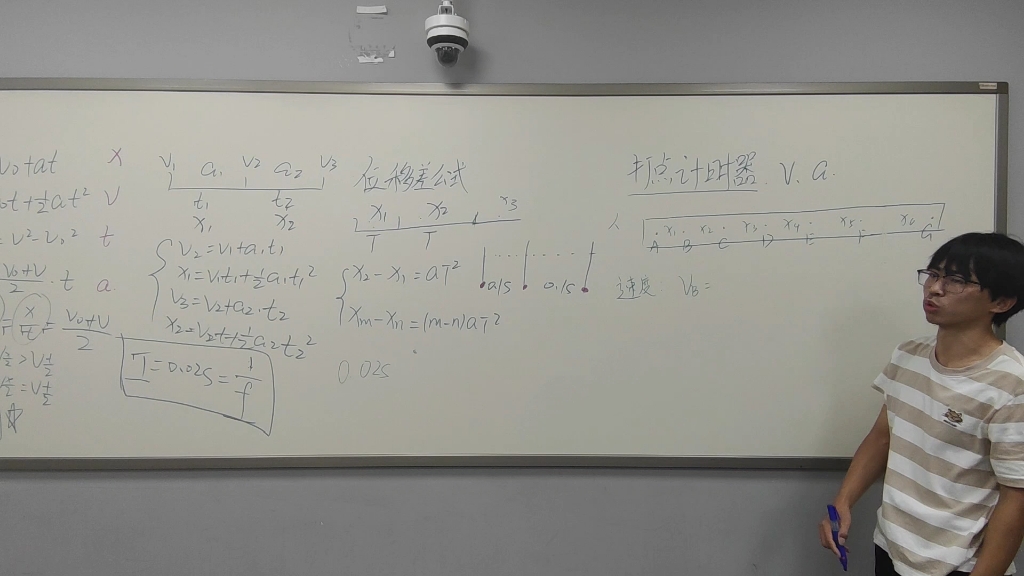 v₀+at X
v₀t+½at² V
=v²-v₀² t
v₀+v/2 · t a
x/t = v₀+v/2
v x/2 > v t/2
v x/2 = v t/2
v₁ a₁ v₂ a₂ v₃
t₁ t₂
x₁ x₂
v₂=v₁+a₁t₁
x₁=v₁t₁+½a₁t₁²
v₃=v₂+a₂·t₂
x₂=v₂t+½a₂t₂²
T=0.02s=1/f
位移差公式
x₁ x₂ x₃
T T
x₂-x₁=aT²
xm-xn=(m-n)aT²
0.02s
0.1s 0.1s
打点计时器 V. a.
x₁ x₂ x₃ x₄ x₅ x₆
A B C D E F G
速度 VB=